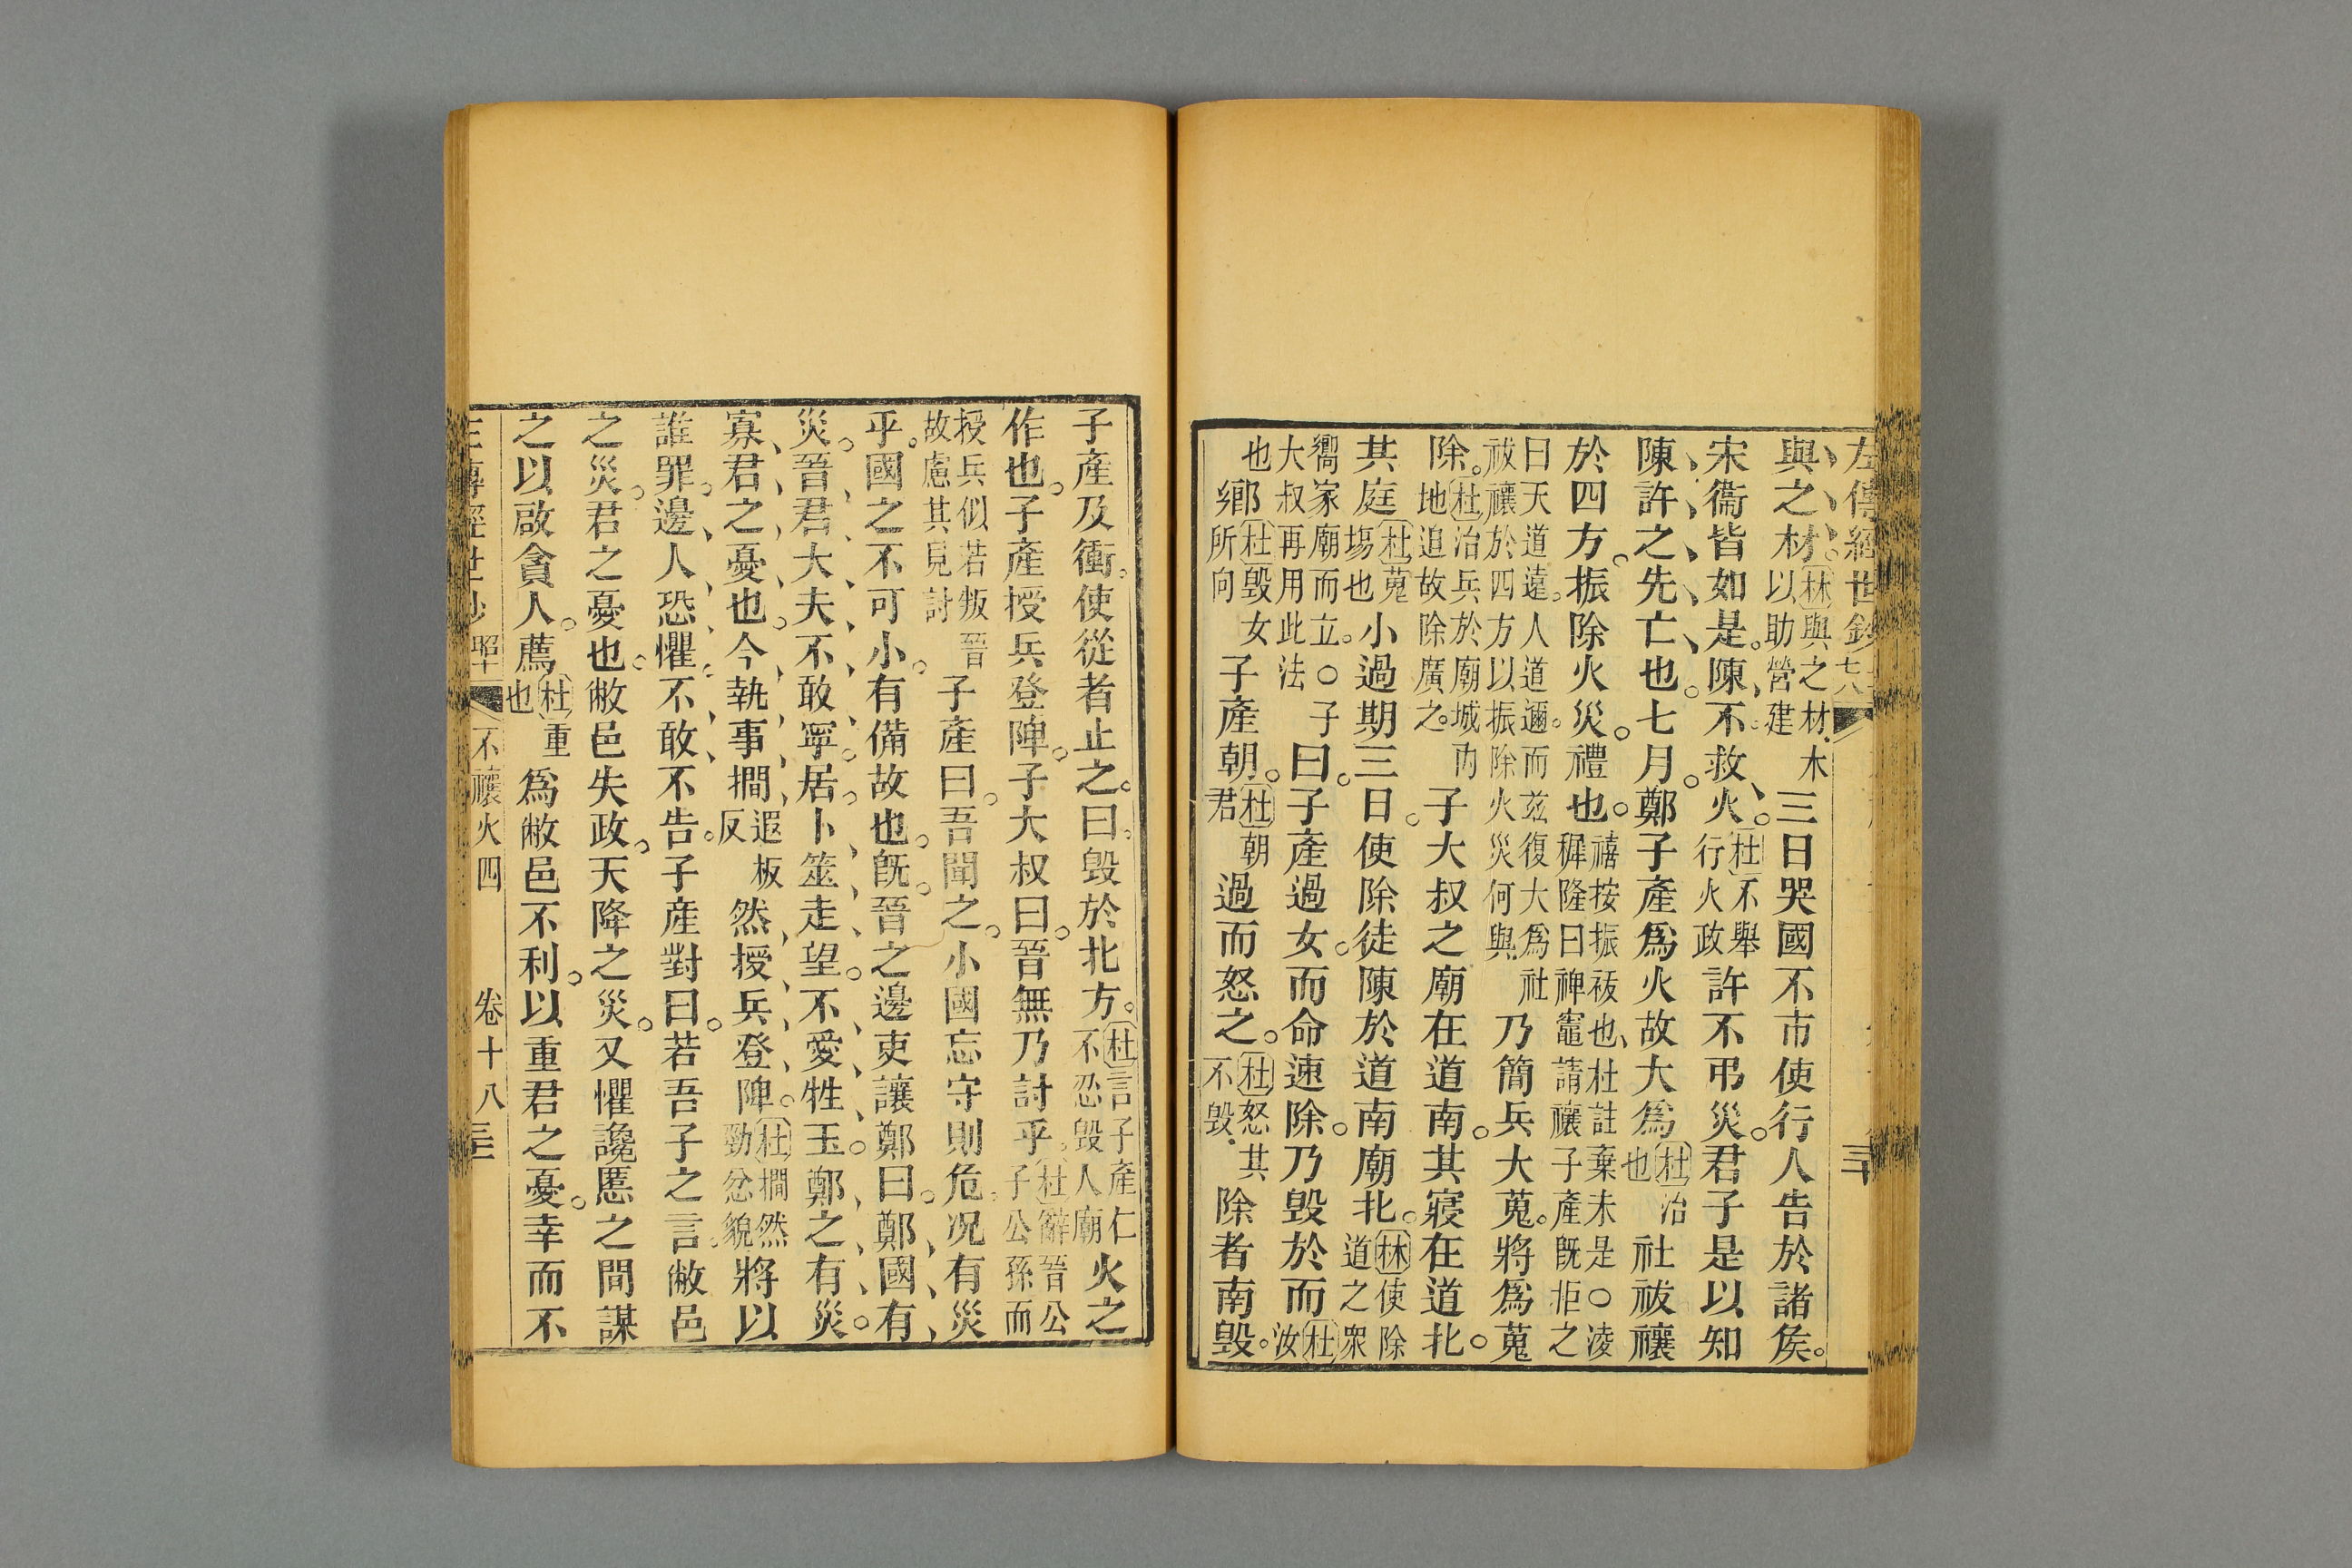 左傳經世鈔
與之材。林與之材木以助營建三日哭國不市使行人告於諸矦。
宋衞皆如是。陳不救火。杜不舉行火政許不弔災。君子是以知
陳許之先亡也。七月。鄭子產爲火故大爲杜治也社祓禳
於四方。振除火災。禮也。禧按振祓也杜註棄未是○凌穉隆曰禆竈請禳子產旣拒之
曰天道遠。人道邇。而茲復大爲社祓禳於四方以振除火災何與乃簡兵大蒐。將爲蒐
除。杜治兵於廟城內地迫故除廣之。子大叔之廟在道南。其寢在道北。
其庭杜蒐塲也小過期三日。使除徒陳於道南廟北。林使除道之衆
嚮家廟而立。○子大叔再用此法曰。子產過女。而命速除。乃毀於而杜汝
也鄉杜毀女所向子產朝。杜朝君過而怒之。杜怒其不毀除者南毀。
子產及衝。使從者止之。曰。毀於北方。杜言子產仁不忍毀人廟火之
作也。子產授兵登陴。子大叔曰。晉無乃討乎。杜辭晉公子公孫而
授兵似若叛晉故慮其見討子產曰。吾聞之。小國忘守則危。況有災
乎。國之不可小。有備故也。旣。晉之邊吏讓鄭曰。鄭國有
災。晉君大夫不敢寧居。卜筮走望。不愛牲玉。鄭之有災。
寡君之憂也。今執事撊遐板反然授兵登陴。杜撊然勁忿貌將以
誰罪。邊人恐懼。不敢不告。子產對曰。若吾子之言。敝邑
之災。君之憂也。敝邑失政。天降之災。又懼讒慝之間謀
之以啟貪人。薦杜重也爲敝邑不利。以重君之憂。幸而不
不禳火四 卷十八